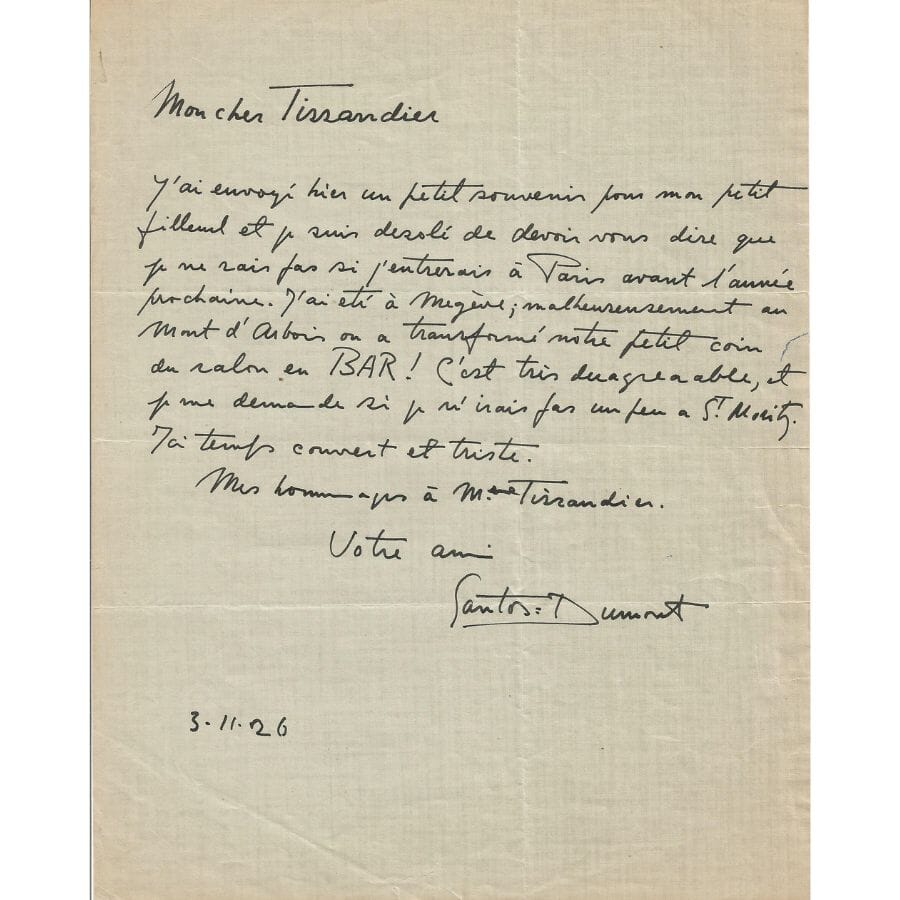 Mon cher Tissandier
J'ai envoyé hier un petit souvenir pour mon petit
filleul et je suis desolé de devoir vous dire que
je ne sais pas si j'entrerais à Paris avant l'année
prochaine. J'ai eté à Megève; malheureusement au
Mont d'Arbois on a transformé notre petit coin
du salon en BAR! C'est très desagreable, et
je me demande si je n'irais pas un peu a St. Moritz.
Ici temps couvert et triste.
Mes hommages à Mme Tissandier.
Votre ami
Santos=Dumont
3.11.26